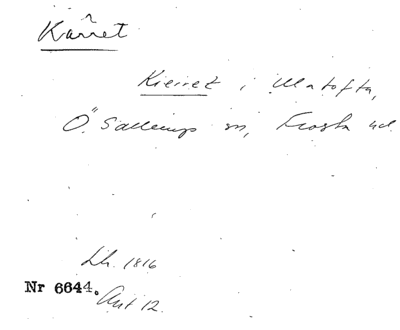 Kärret
Kierret i Ulatofta,
Ö. Sallerup sn, Frosta hd.
Lh. 1816
Nr 6644. Ant 12.